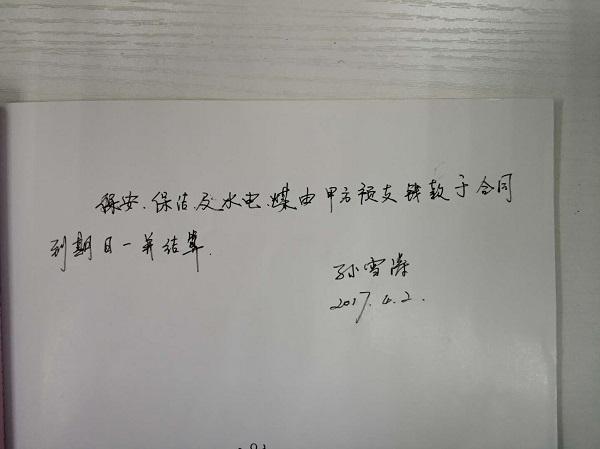 保安、保洁及水电、煤由甲方预支钱款于合同
到期日一并结算.
孙雪涛
2017.4.2.